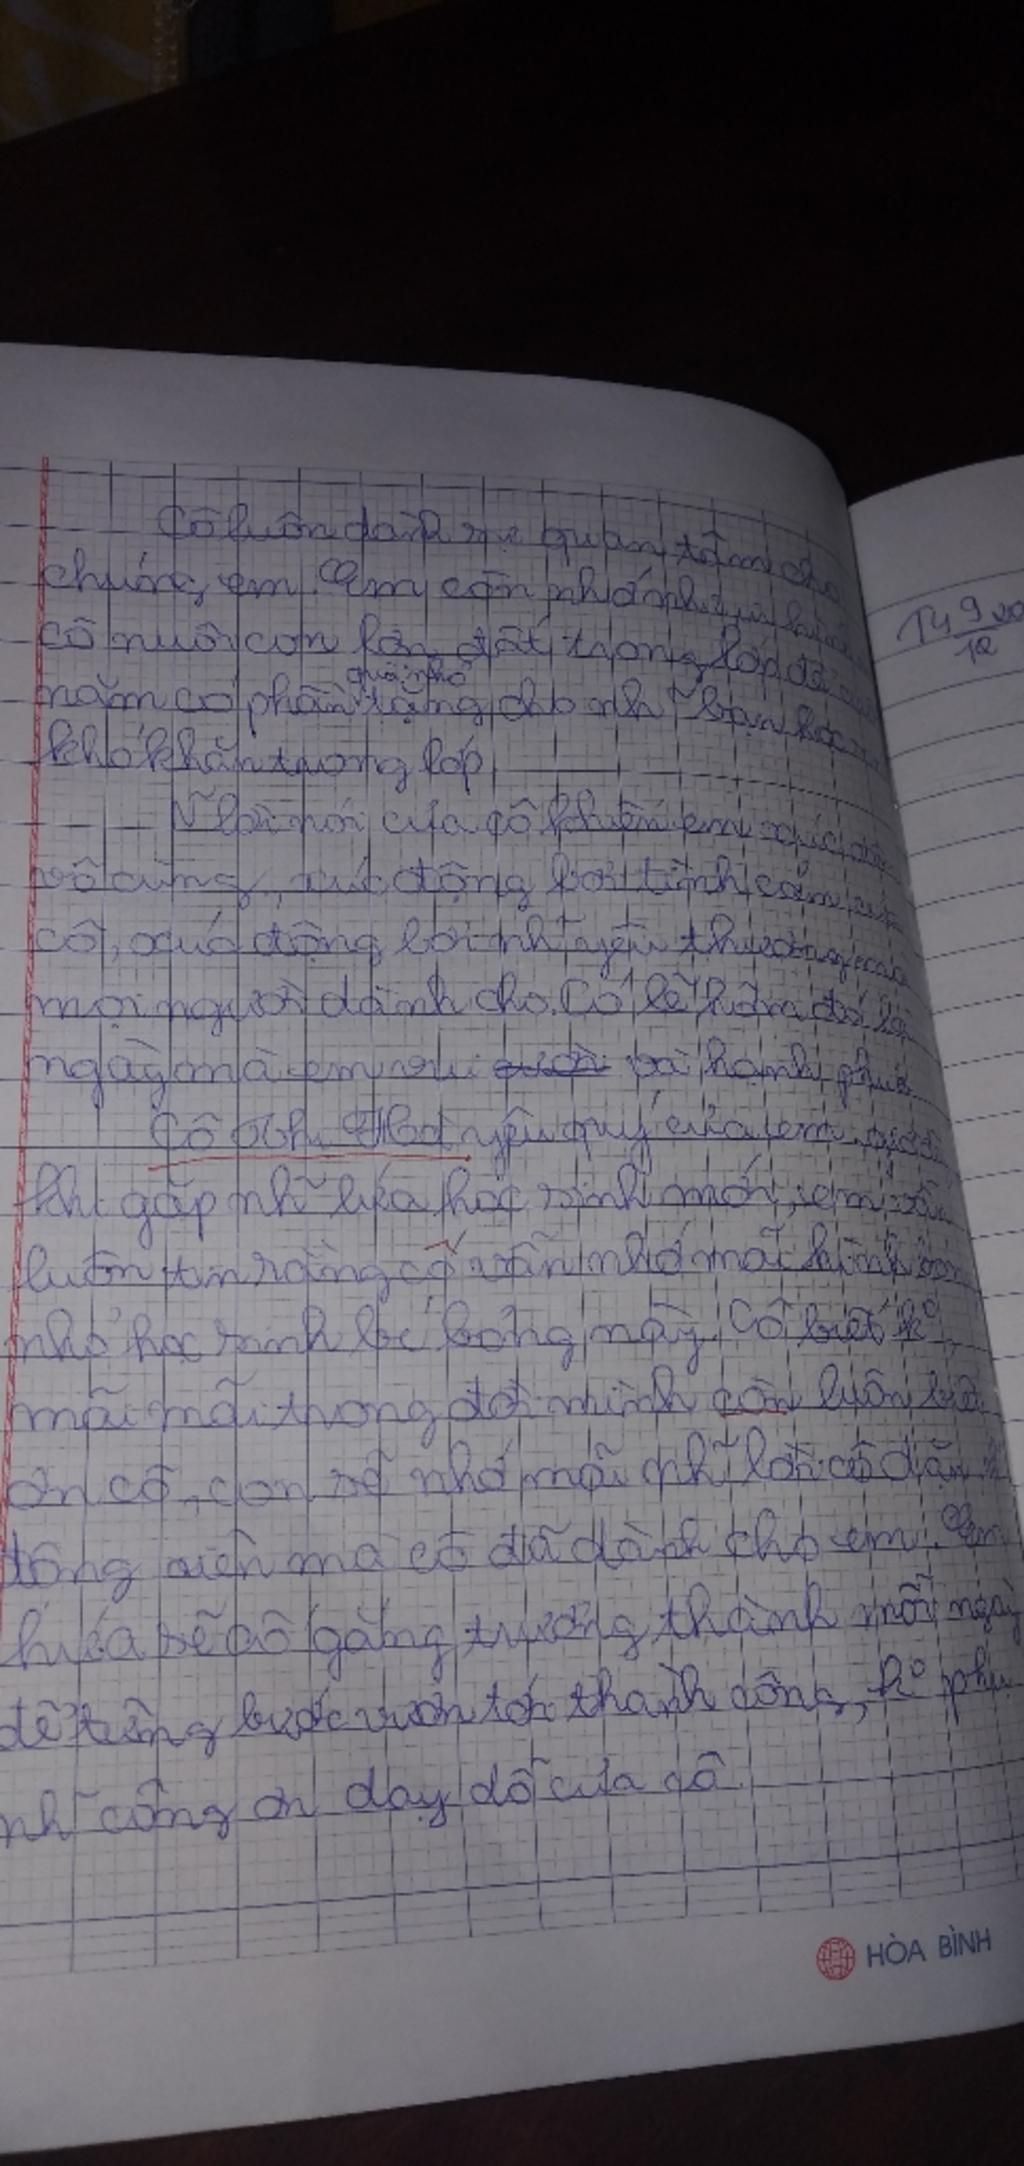 Cô luôn dành sự quan tâm cho
chúng em. Em còn nhớ như in hình
cô nuôi con lợn đất trong lớp để
quà nhỏ
năm có phần tặng cho nh~ bạn học
khó khăn trong lớp
N~ lời nói của cô khiến em xúc động
vô cùng, xúc động bởi tình cảm của
cô, xúc động bởi nh~ yêu thương của
mọi người dành cho. Có lẽ hôm đó là
ngày mà em vui và hạnh phúc
Cô yêu quý của em,
khi gặp nh~ lứa học sinh mới, em vẫn
luôn tin rằng cô vẫn nhớ mãi hình bóng
nhỏ học sinh bé bỏng này. Cô biết ko
mãi mãi trong đời mình còn luôn biết
ơn cô, con sẽ nhớ mãi nh~ lời cô dặn
động viên mà cô đã dành cho em. Em
hứa sẽ cố gắng trưởng thành mỗi ngày
để từng bước vươn tới thành công, ko phụ
nh~ công ơn dạy dỗ của cô
HÒA BÌNH
149
12